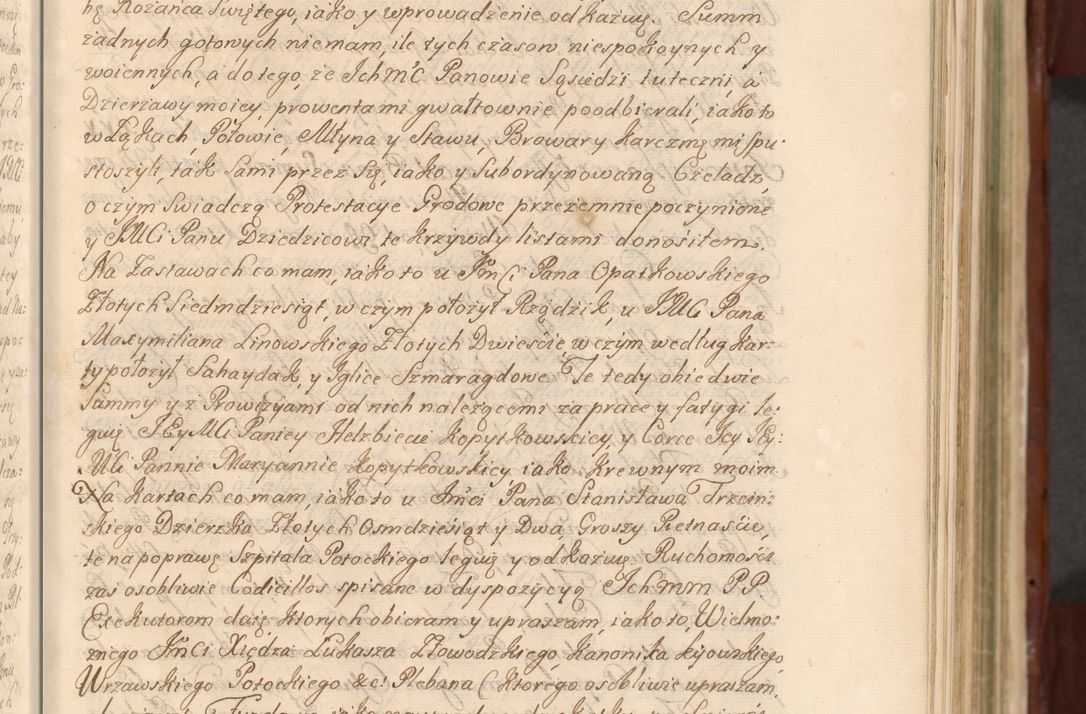 bę Rozanca Swiętego, iako y wprowadzenie odkazuię. Summ
żadnych gotowych niemam, ile tych czasow niespokoynych y
woiennych, a do tego, że Ichmć Panowie Sąsiedzi tuteczni, á
Dzierzawy moiey, prowentami gwałtownie poodbierali, iako to
w Łąkach, Połowie Młyna, y Stawu, Browary karczmę mi spu-
stoszyli, ták sami przez się, iako y subordynowaną Czeladz,
o czym swiadczą Protestacye Grodowe przezemnie poczynione
y JMCi Panu Dziedzicowi te krzywdy listami donosiłem.
Na Zastawach co mam, iako to u Jmći Pana Opatkowskiego
Złotych siedmdziesiąt, w czym położył Rządzik, u JMCi Pana
Maxymiliana Linowskiego Złotych Dwieście, w czym według kar-
ty położył Sahaydak, y Iglice Szmaragdowe. Te tedy obiedwie
Summy y z Prowizyami od nich nalezącemi za prace y fatygi le-
guię JEyMCi Paniey Helzbiecie kopytkowskiey, y Corce Jey JEy-
MCi Pannie Maryannie kopytkowskiey, iako krewnym moim.
Na kartach co mam, iako to u Jmći Pana Stanisława Trzciń-
skiego Dzierzka Złotych Osmdziesiąt y Dwa Groszy Pietnaście,
te na poprawę Szpitala Potockiego leguię y odkazuię Ruchomości
zas osobliwie Codicillos spisane w dyspozycyą Ichmm PP
Exekutorom daię ktorych obieram y upraszam, iako to, Wielmo-
żnego Jmći Xiędza Łukasza Złowodzkiego, kanonika kijowskiego,
Wrzawskiego Potockiego &c: Plebana (ktorego osobliwie upraszam,